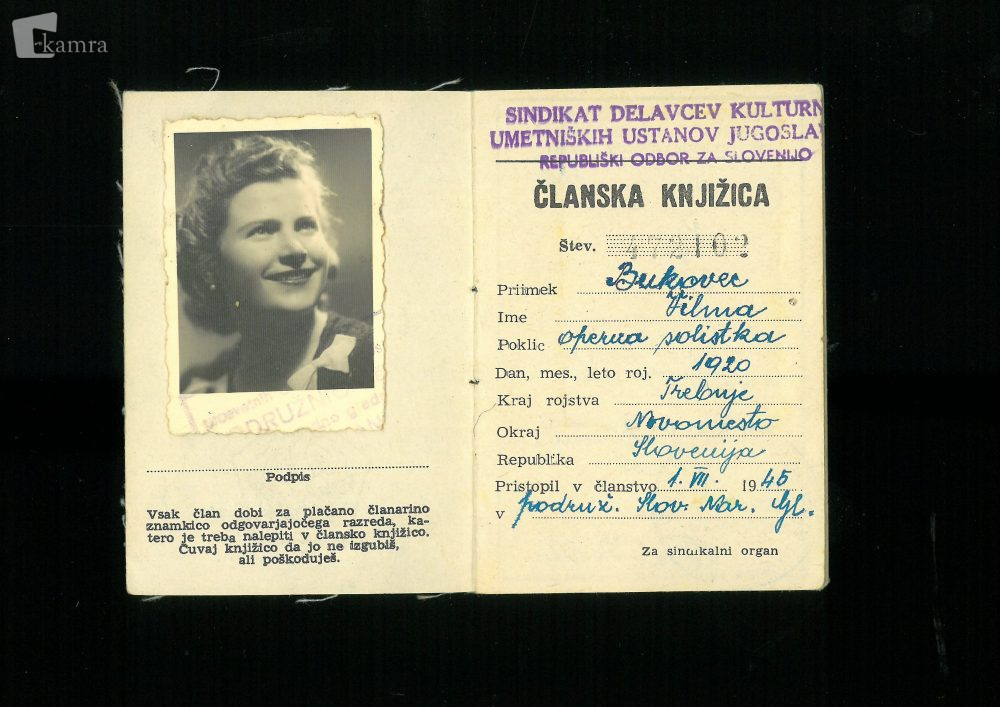 kamra
Podpis
Vsak član dobi za plačano članarino
znamkico odgovarjajočega razreda, ka-
tero je treba nalepiti v člansko knjižico.
Čuvaj knjižico da jo ne izgubiš,
ali poškoduješ.
SINDIKAT DELAVCEV KULTURN
UMETNIŠKIH USTANOV JUGOSLA
REPUBLIŠKI ODBOR ZA SLOVENIJO
ČLANSKA KNJIŽICA
Štev. 472102
Priimek Bukovec
Ime Vilma
Poklic operna solistka
Dan, mes., leto roj. 1920
Kraj rojstva Trebnje
Okraj Novomesto
Republika Slovenija
Pristopil v članstvo 1. VII. 1945
v podruž. Slov. Nar. Gl.
Za sindikalni organ